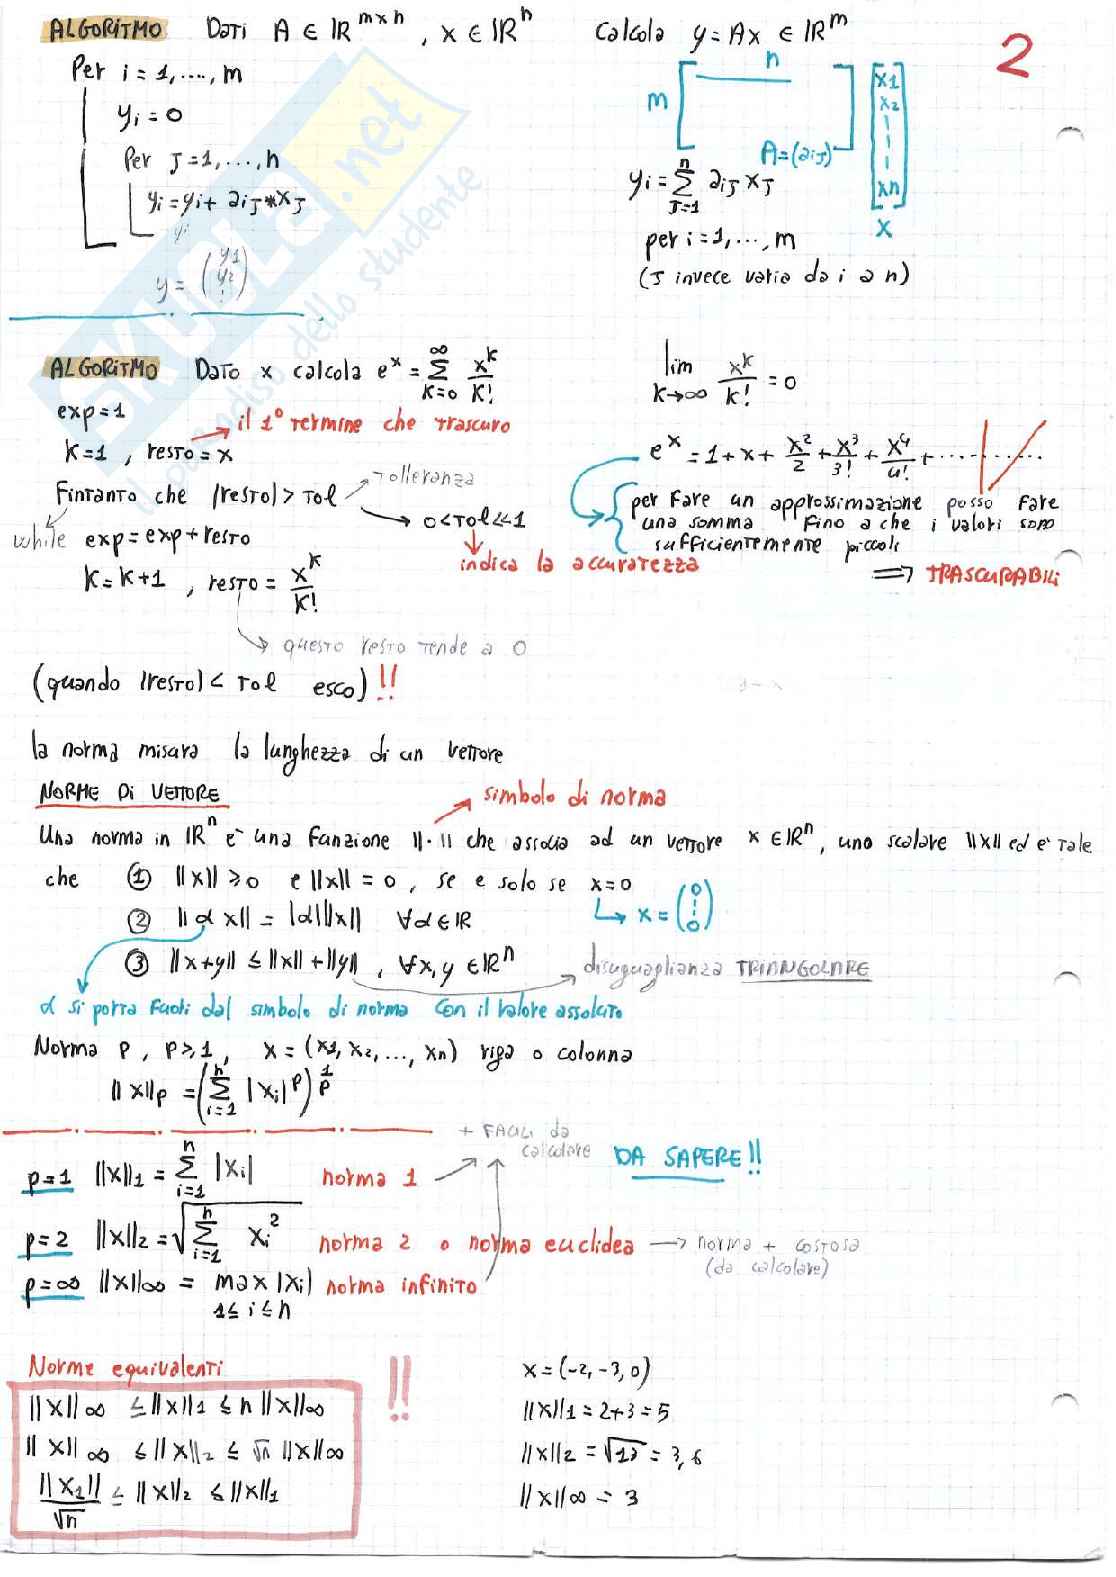 ALGORITMO Dati A ∈ ℝ^{m×n}, x ∈ ℝ^n Calcola y = Ax ∈ ℝ^m
2
Per i = 1, ...., m
y_i = 0
Per J = 1, ..., n
y_i = y_i + a_{iJ} * x_J
y_i
y = (y1 y2 ⋮)
n
m
A = (a_{iJ})
x1
x2
xn
x
y_i = Σ_{J=1}^{n} a_{iJ} x_J
per i = 1, ..., m
(J invece varia da i a n)
SKUOLA.net
il paradiso dello studente
ALGORITMO Dato x calcola e^x = Σ_{K=0}^{∞} x^K / K!
exp = 1
il 1° termine che trascuro
K = 1, resto = x
Fintanto che |resto| > Tol
Tolleranza
0 < Tol << 1
indica la accuratezza
while exp = exp + resto
K = K + 1, resto = x^K / K!
questo resto tende a 0
(quando |resto| < Tol esco) !!
lim_{K→∞} x^K / K! = 0
e^x = 1 + x + x^2/2 + x^3/3! + x^4/4! + ..........
per fare un approssimazione posso fare
una somma fino a che i valori sono
sufficientemente piccoli
⟹ TRASCURABILI
la norma misura la lunghezza di un vettore
NORME DI VETTORE
simbolo di norma
Una norma in ℝ^n è una funzione ||·|| che associa ad un vettore x ∈ ℝ^n, uno scalare ||x|| ed è tale
che ① ||x|| ≥ 0 e ||x|| = 0, se e solo se x = 0
x = (0 ⋮ 0)
② ||α x|| = |α| ||x|| ∀α ∈ ℝ
③ ||x+y|| ≤ ||x|| + ||y||, ∀x, y ∈ ℝ^n
disuguaglianza TRIANGOLARE
α si porta fuori dal simbolo di norma con il valore assoluto
Norma P, P ≥ 1, x = (x1, x2, ..., xn) riga o colonna
||x||_p = (Σ_{i=1}^{n} |x_i|^p)^{1/p}
+ FACILI da
calcolare
DA SAPERE!!
p = 1 ||x||_1 = Σ_{i=1}^{n} |x_i| norma 1
p = 2 ||x||_2 = √(Σ_{i=1}^{n} x_i^2) norma 2 o norma euclidea → norma + costosa
(da calcolare)
p = ∞ ||x||_∞ = max |x_i| norma infinito
1 ≤ i ≤ n
Norme equivalenti !!
||x||_∞ ≤ ||x||_1 ≤ n ||x||_∞
||x||_∞ ≤ ||x||_2 ≤ √n ||x||_∞
||x_1|| / √n ≤ ||x||_2 ≤ ||x||_1
x = (-2, -3, 0)
||x||_1 = 2+3 = 5
||x||_2 = √13 = 3,6
||x||_∞ = 3